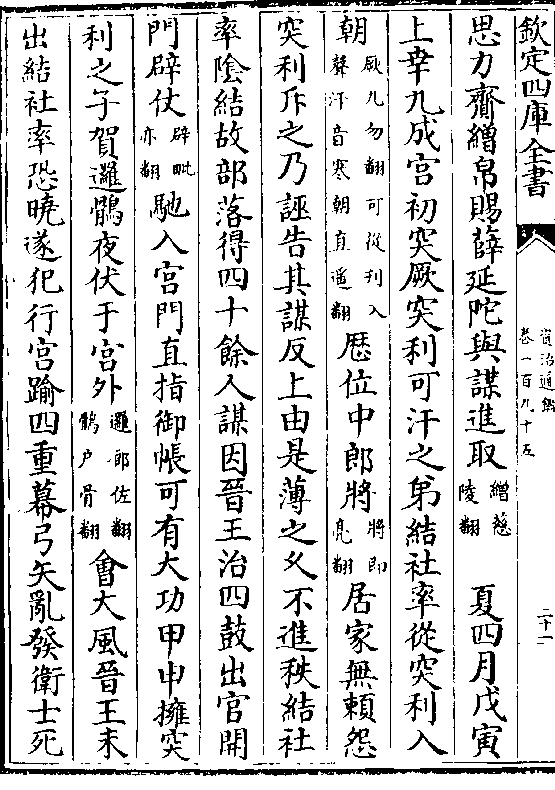 欽定四庫全書
資治通鑑
卷一百九十五
二十一
思力齎繒帛賜薛延陀與謀進取繒慈陵翻夏四月戊寅
上幸九成宮初突厥突利可汗之弟結社率從突利入
朝厥九勿翻可從刋入聲汗音寒朝直遥翻歴位中郎將將即亮翻居家無頼怨
突利斥之乃誣告其謀反上由是薄之久不進秩結社
率隂結故部落得四十餘人謀因晉王治四鼓出宫開
門辟仗辟毗亦翻馳入宫門直指御帳可有大功甲申擁突
利之子賀邏鶻夜伏于宫外邏郎佐翻鶻户骨翻會大風晉王未
出結社率恐曉遂犯行宫踰四重幕弓矢亂發衛士死